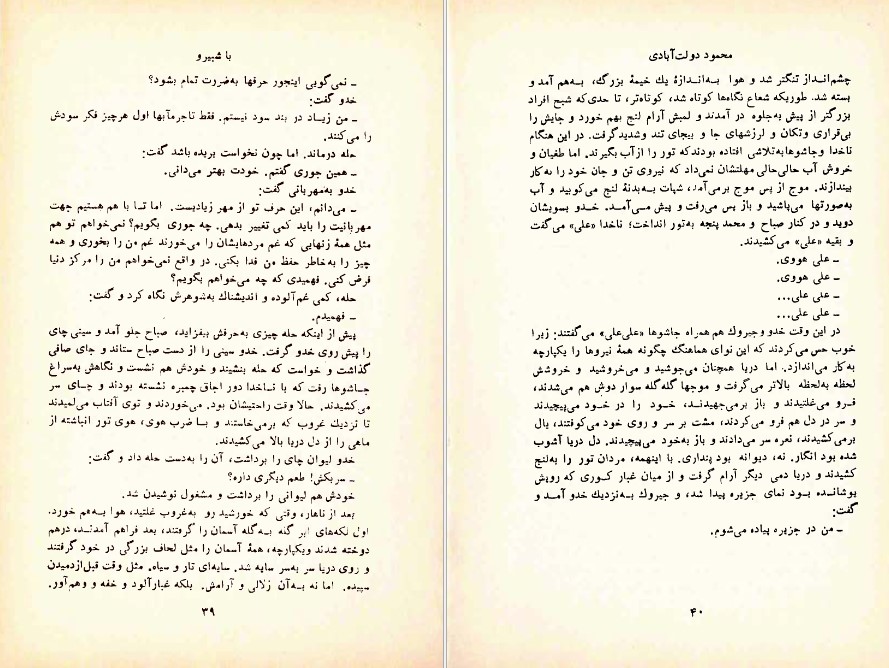 با شبیرو
ـ نمی‌گویی اینجور حرفها به‌ضررت تمام بشود؟
خدو گفت:
ـ من زیاد در بند سود نیستم. فقط تاجرمآبها اول هرچیز فکر سودش
را می‌کنند.
حله درماند. اما چون نخواست بریده باشد گفت:
ـ همین جوری گفتم. خودت بهتر می‌دانی.
خدو به‌مهربانی گفت:
ـ می‌دانم، این حرف تو از مهر زیادیست. اما تا با هم هستیم جهت
مهربانیت را باید کمی تغییر بدهی. چه جوری بگویم؟ نمی‌خواهم تو هم
مثل همهٔ زنهایی که غم مردهایشان را می‌خورند غم من را بخوری و همه
چیز را به‌خاطر حفظ من فدا بکنی. در واقع نمی‌خواهم من را مرکز دنیا
فرض کنی. فهمیدی که چه می‌خواهم بگویم؟
حله، کمی غم‌آلوده و اندیشناك به‌شوهرش نگاه کرد و گفت:
ـ فهمیدم.
پیش از اینکه حله چیزی به‌حرفش بیفزاید، صباح جلو آمد و سینی چای
را پیش روی خدو گرفت. خدو سینی را از دست صباح ستاند و جای صافی
گذاشت و خواست که حله بنشیند و خودش هم نشست و نگاهش به‌سراغ
جاشوها رفت که با ناخدا دور اجاق چمبره نشسته بودند و چای سر
می‌کشیدند. حالا وقت راحتیشان بود. می‌خوردند و توی آفتاب می‌لمیدند
تا نزدیك غروب که برمی‌خاستند و با ضرب هوی، هوی تور انباشته از
ماهی را از دل دریا بالا می‌کشیدند.
خدو لیوان چای را برداشت، آن را به‌دست حله داد و گفت:
ـ سربکش! طعم دیگری داره؟
خودش هم لیوانی را برداشت و مشغول نوشیدن شد.
بعد از ناهار، وقتی که خورشید رو به‌غروب غلتید، هوا به‌هم خورد.
اول لکه‌های ابر گله به‌گله آسمان را گرفتند، بعد فراهم آمدند، درهم
دوخته شدند ویکپارچه، همهٔ آسمان را مثل لحاف بزرگی در خود گرفتند
و روی دریا سر به‌سر سایه شد. سایه‌ای تار و سیاه. مثل وقت قبل‌ازدمیدن
سپیده. اما نه به‌آن زلالی و آرامش. بلکه غبارآلود و خفه و وهم‌آور.
۳۹
محمود دولت‌آبادی
چشم‌انداز تنگتر شد و هوا به‌اندازهٔ یك خیمهٔ بزرگ، به‌هم آمد و
بسته شد. طوریکه شعاع نگاه‌ها کوتاه شد، کوتاه‌تر، تا حدی‌که شبح افراد
بزرگتر از پیش به‌جلوه در آمدند و لمبش آرام لنج بهم خورد و جایش را
بی‌قراری وتکان و لرزشهای جا و بیجای تند وشدیدگرفت. در این هنگام
ناخدا وجاشوها به‌تلاشی افتاده بودندکه تور را ازآب بگیرند. اما طغیان و
خروش آب حالی‌حالی مهلتشان نمی‌داد که نیروی تن و جان خود را به‌کار
بیندازند. موج از پس موج برمی‌آمد، شپات به‌بدنهٔ لنج می‌کوبید و آب
به‌صورتها می‌پاشید و باز پس می‌رفت و پیش می‌آمد. خدو بسویشان
دوید و در کنار صباح و محمد پنجه به‌تور انداخت؛ ناخدا «علی» می‌گفت
و بقیه «علی» می‌کشیدند.
ـ علی هووی.
ـ علی هووی.
ـ علی علی...
ـ علی علی...
در این وقت خدو وجبروك هم همراه جاشوها «علی‌علی» می‌گفتند: زیرا
خوب حس می‌کردند که این نوای هماهنگ چگونه همهٔ نیروها را یکپارچه
به‌کار می‌اندازد. اما دریا همچنان می‌جوشید و می‌خروشید و خروشش
لحظه به‌لحظه بالاتر می‌گرفت و موجها گله‌گله سوار دوش هم می‌شدند،
فرو می‌غلتیدند و باز برمی‌جهیدند، خود را در خود می‌پیچیدند
و سر در دل هم فرو می‌کردند، مشت بر سر و روی خود می‌کوفتند، بال
برمی‌کشیدند، نعره سر می‌دادند و باز به‌خود می‌پیچیدند. دل دریا آشوب
شده بود انگار. نه، دیوانه بود پنداری. با اینهمه، مردان تور را به‌لنج
کشیدند و دریا دمی دیگر آرام گرفت و از میان غبار کوری که رویش
پوشانده بود نمای جزیره پیدا شد، و جبروك به‌نزدیك خدو آمد و
گفت:
ـ من در جزیره پیاده می‌شوم.
۴۰